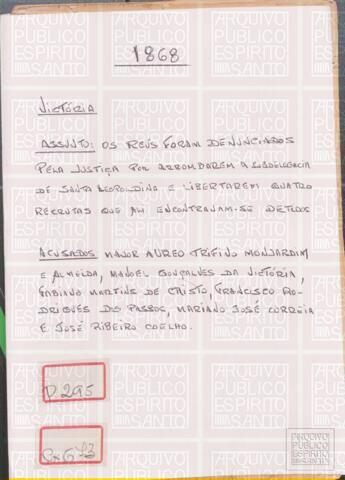 1868
VICTÓRIA
ASSUNTO: OS RÉUS FORAM DENUNCIADOS
PELA JUSTIÇA POR ARROMBAREM A SUBDELEGACIA
DE SANTA LEOPOLDINA E LIBERTAREM QUATRO
RECRUTAS QUE ALI ENCONTRAVAM-SE DETIDOS
ACUSADOS MAJOR AUREO TRIFINO MONJARDIM
E ALMEIDA, MANOEL GONÇALVES DA VICTÓRIA,
FABIANO MARTINS DE CRISTO, FRANCISCO RO-
DRIGUES DOS PASSOS, MARIANO JOSÉ CORREIA
E JOSÉ RIBEIRO COELHO.
D 295
Cx 673
ARQUIVO
PÚBLICO
ESPÍRITO
SANTO